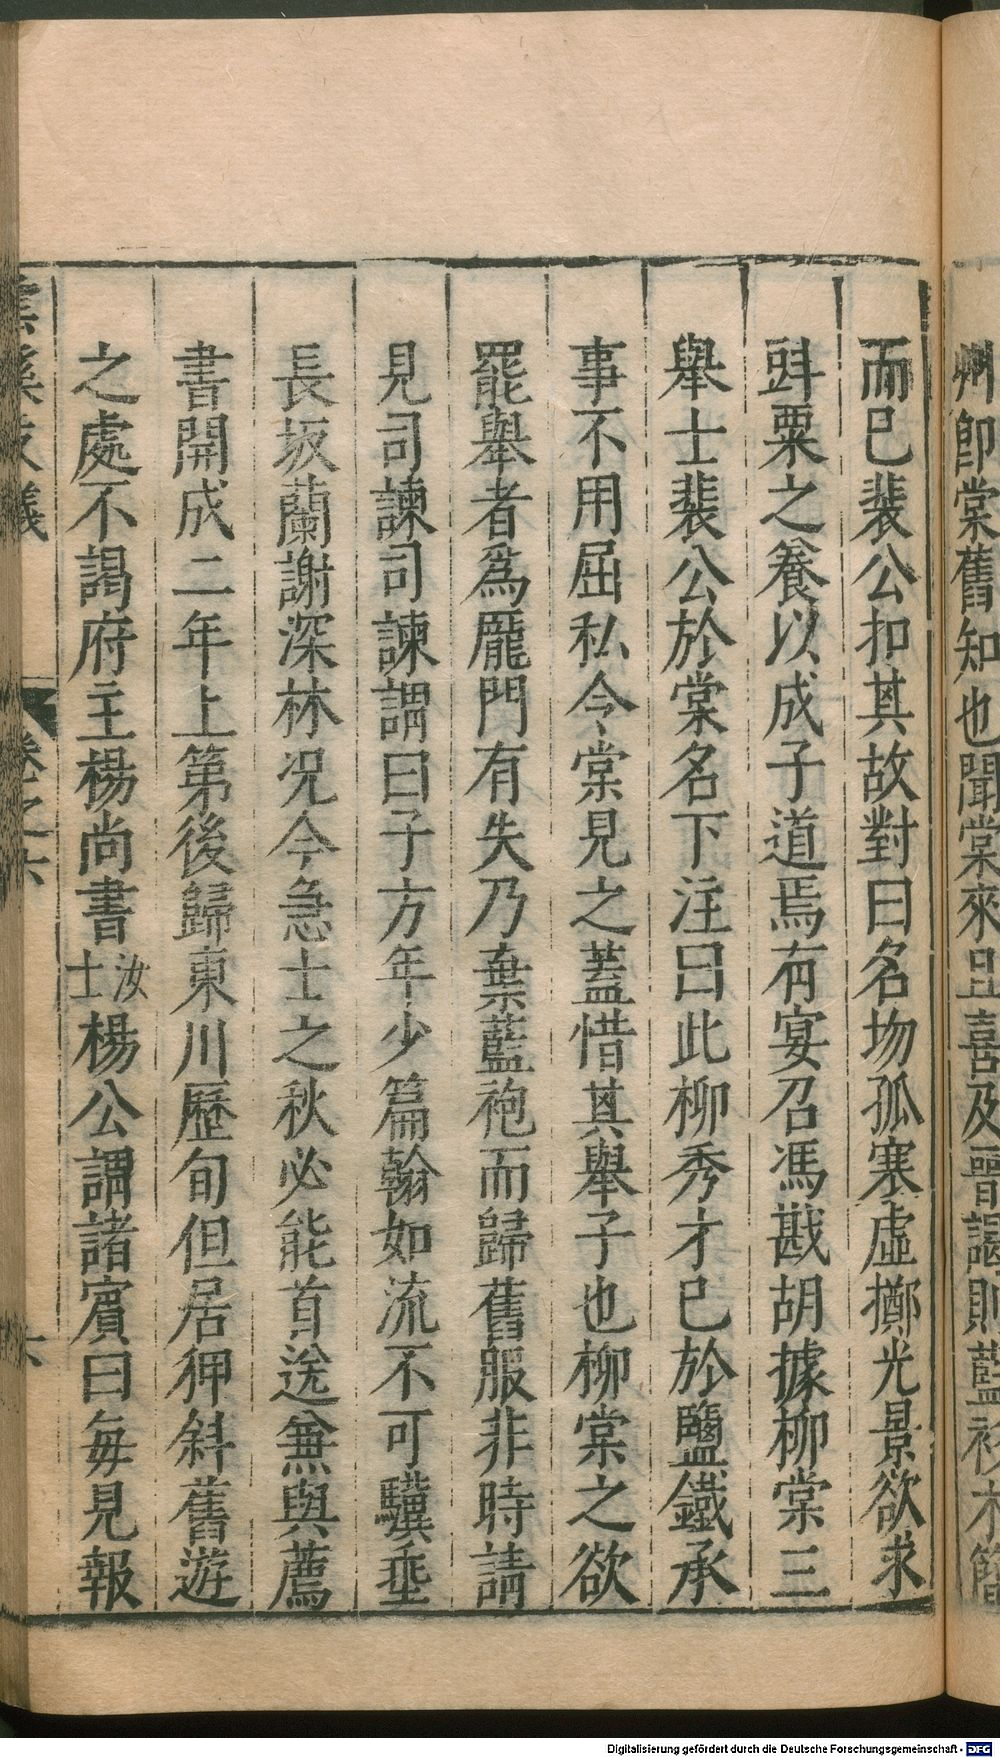 州卽棠舊知也聞棠來且喜及晉謁則藍衫木簡
而已裴公扣其故對曰名場孤寒虛擲光景欲求
㪷粟之養以成子道焉有宴召馮戡胡據柳棠三
舉士裴公於棠名下注曰此柳秀才已於鹽鐵承
事不用屈私令棠見之蓋惜其舉子也柳棠之欲
罷舉者爲龎門有失乃棄藍袍而歸舊服非時請
見司諫司諫謂曰子方年少篇翰如流不可驥垂
長坂蘭謝深林况今急士之秋必能首送兼與薦
書開成二年上第後歸東川歷旬但居狎斜舊遊
之處不謁府主楊尚書汝士楊公謂諸賓曰每見報
雲溪友議 卷之六 六
Digitalisierung gefördert durch die Deutsche Forschungsgemeinschaft - DFG